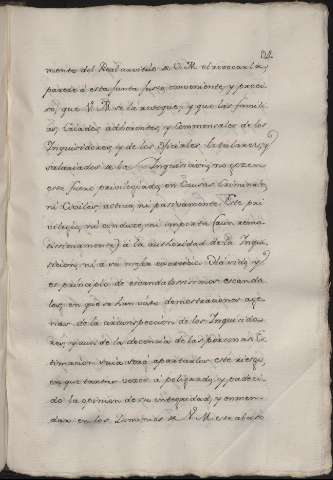 mente del Real arvitrio de V. M. el revocarla,
parece á esta Junta justo, conveniente, y preci
so, que V. M. se la revoque; y que las familia
as, Criados, adherentes, y Commensales de los
Inquisidores, y de los Oficiales titulares, y
salariados de la Inquisicion, no gozen
este fuero privilegiado en Causas Criminales,
ni Civiles, activa, ni passivamente. Este pri
vilegio, ni conduce, ni importa (aun remo
tissimamente) á la authoridad de la Inqui
sicion, ni á su mejor exercicio. Olvido, y
es principio de escandalosissimos escanda
los, en que se han visto demostraciones age
nas de la circunspeccion de los Inquisido
res, y aun de la decencia de las personas. Es
timacion suia será apartarles este riesgo,
en que tantas veces á peligrado, y padeci
do la opinion de su integridad, y enmen
dar en los Dominios de V. M. este abuso